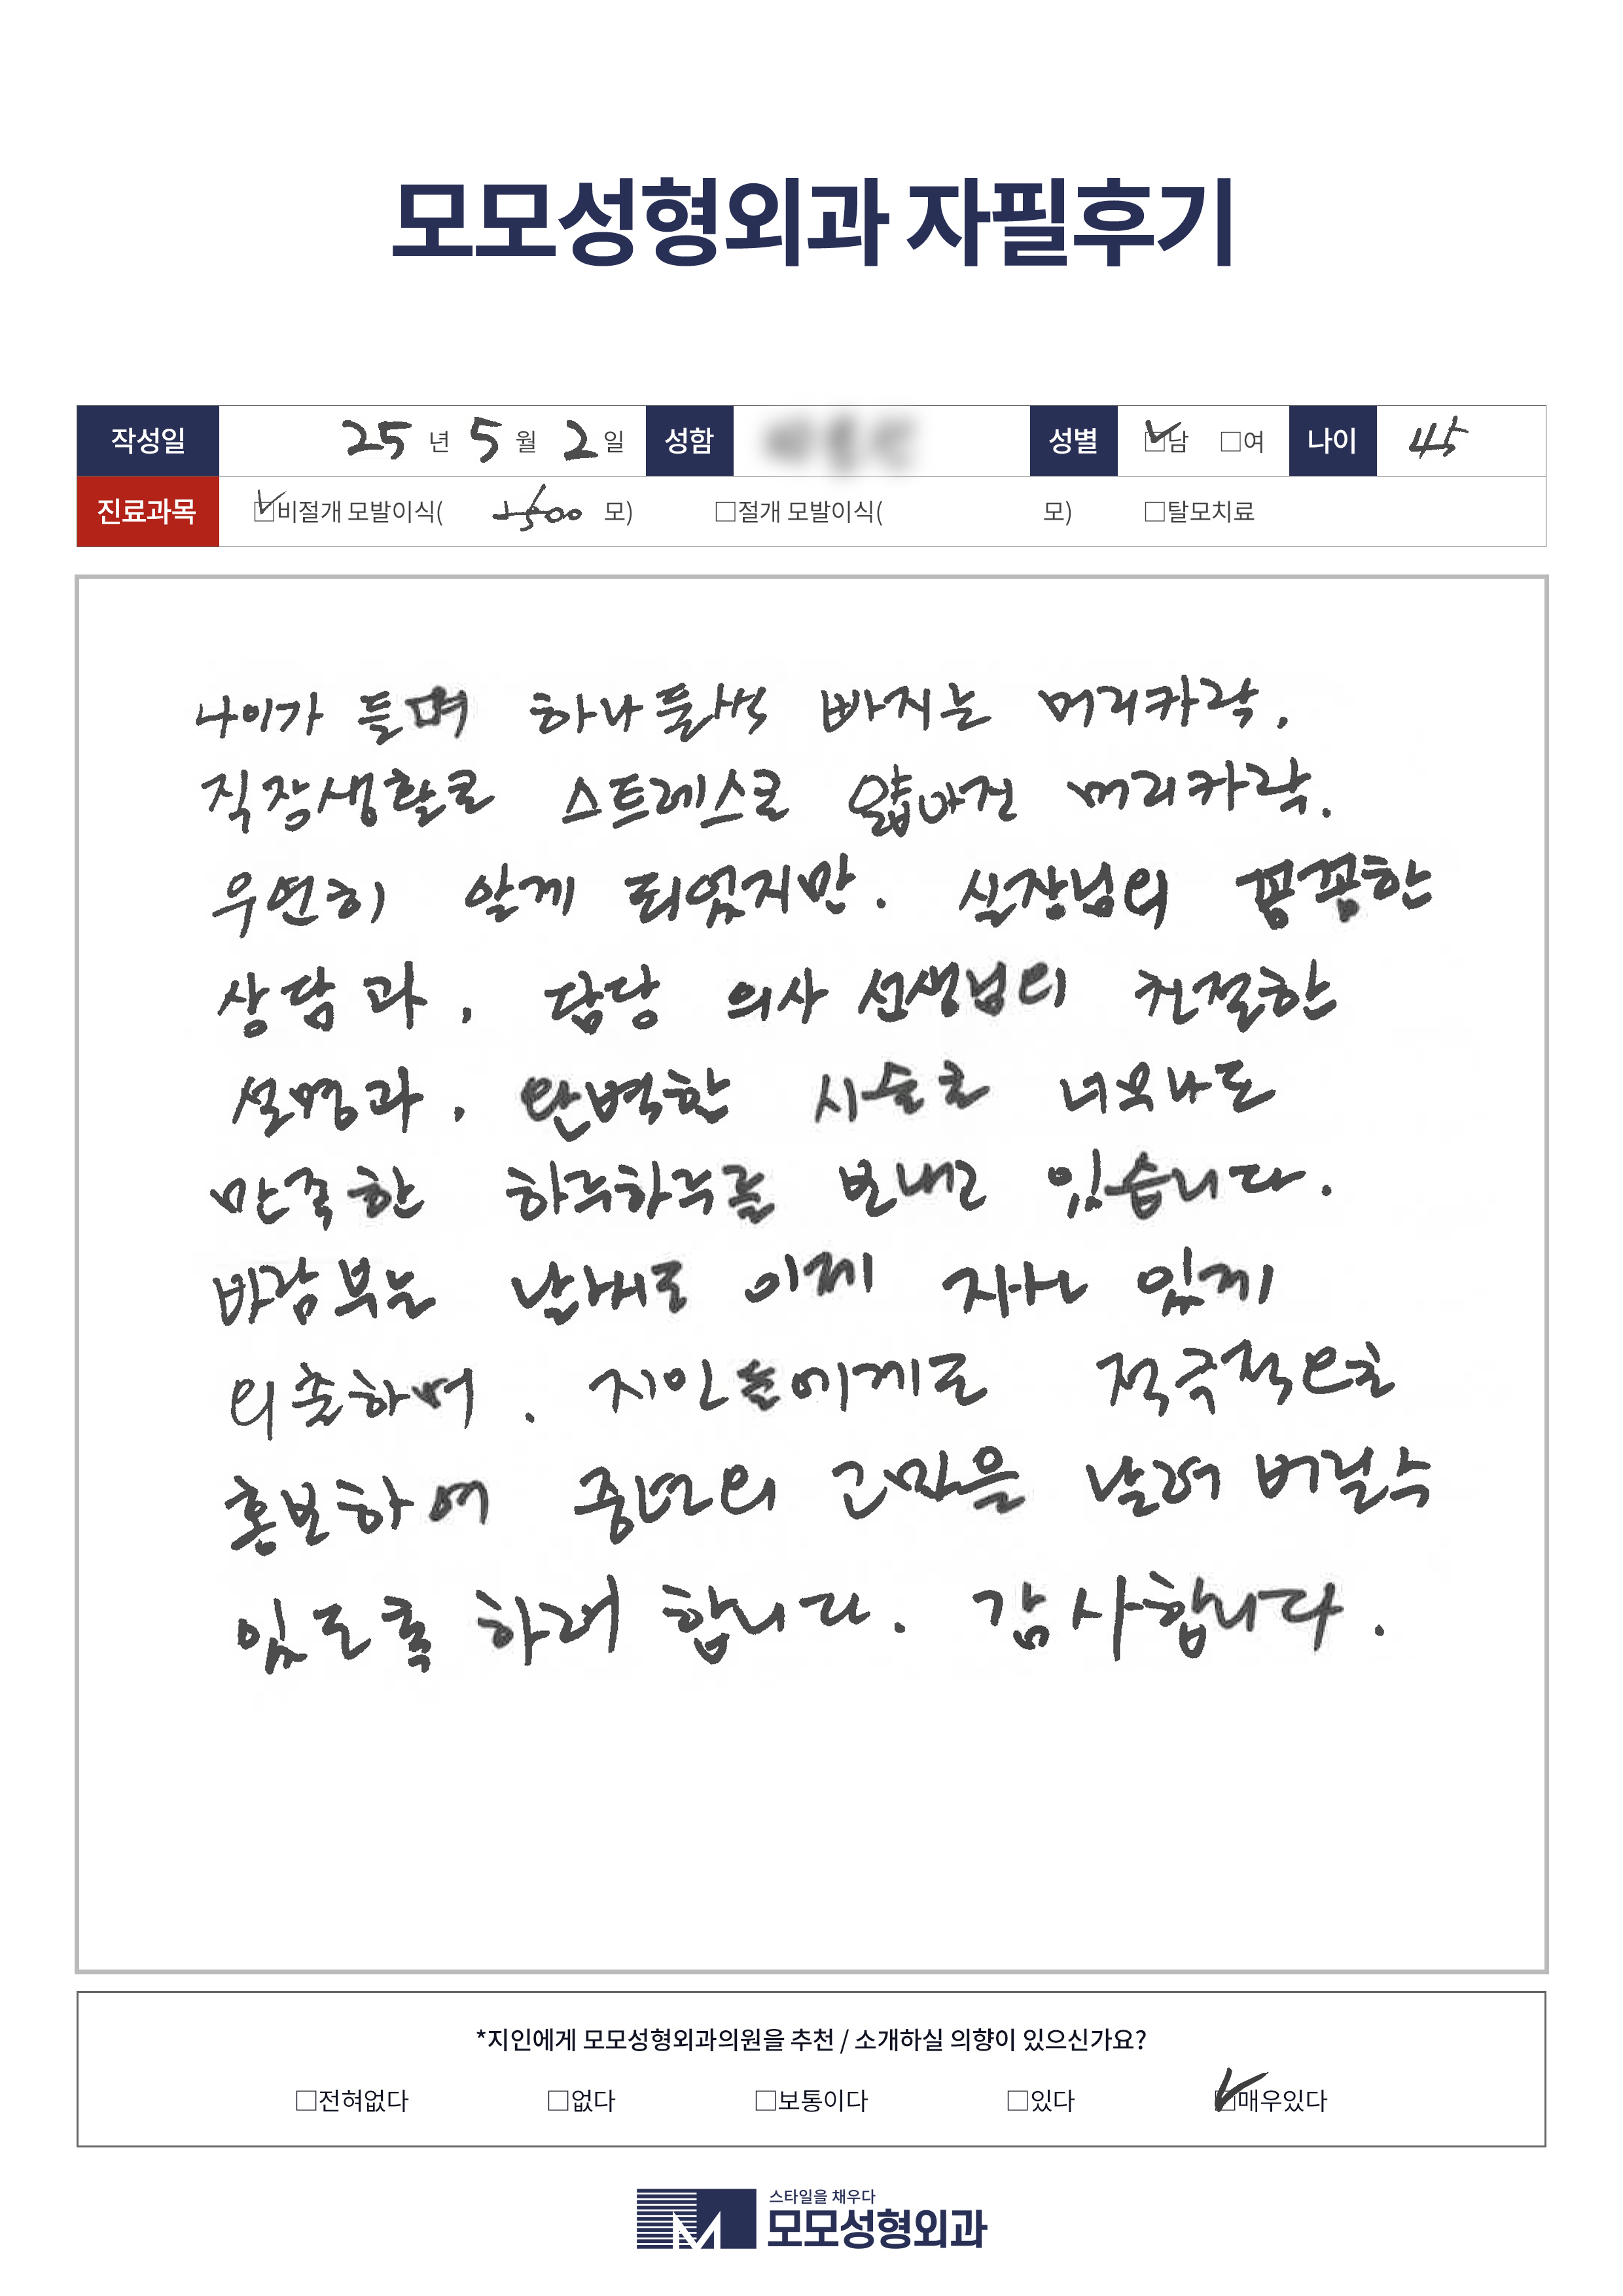 모모성형외과 자필후기
작성일 25 년 5 월 2 일 성함 성별 ☑남 □여 나이 45
진료과목 ☑비절개 모발이식( 모) □절개 모발이식( 모) □탈모치료
나이가 들며 하나 둘씩 빠지는 머리카락,
직장생활로 스트레스로 얇아진 머리카락.
우연히 알게 되었지만. 실장님의 꼼꼼한
상담과, 담당 의사 선생님의 친절한
설명과, 완벽한 시술로 너무나도
만족한 하루하루를 보내고 있습니다.
바람부는 날에도 이제 자신 있게
외출하며, 지인들에게도 적극적으로
홍보하여 중년의 고민을 날려 버릴수
있도록 하려 합니다. 감사합니다.
*지인에게 모모성형외과의원을 추천 / 소개하실 의향이 있으신가요?
□전혀없다 □없다 □보통이다 □있다 ☑매우있다
스타일을 채우다
모모성형외과